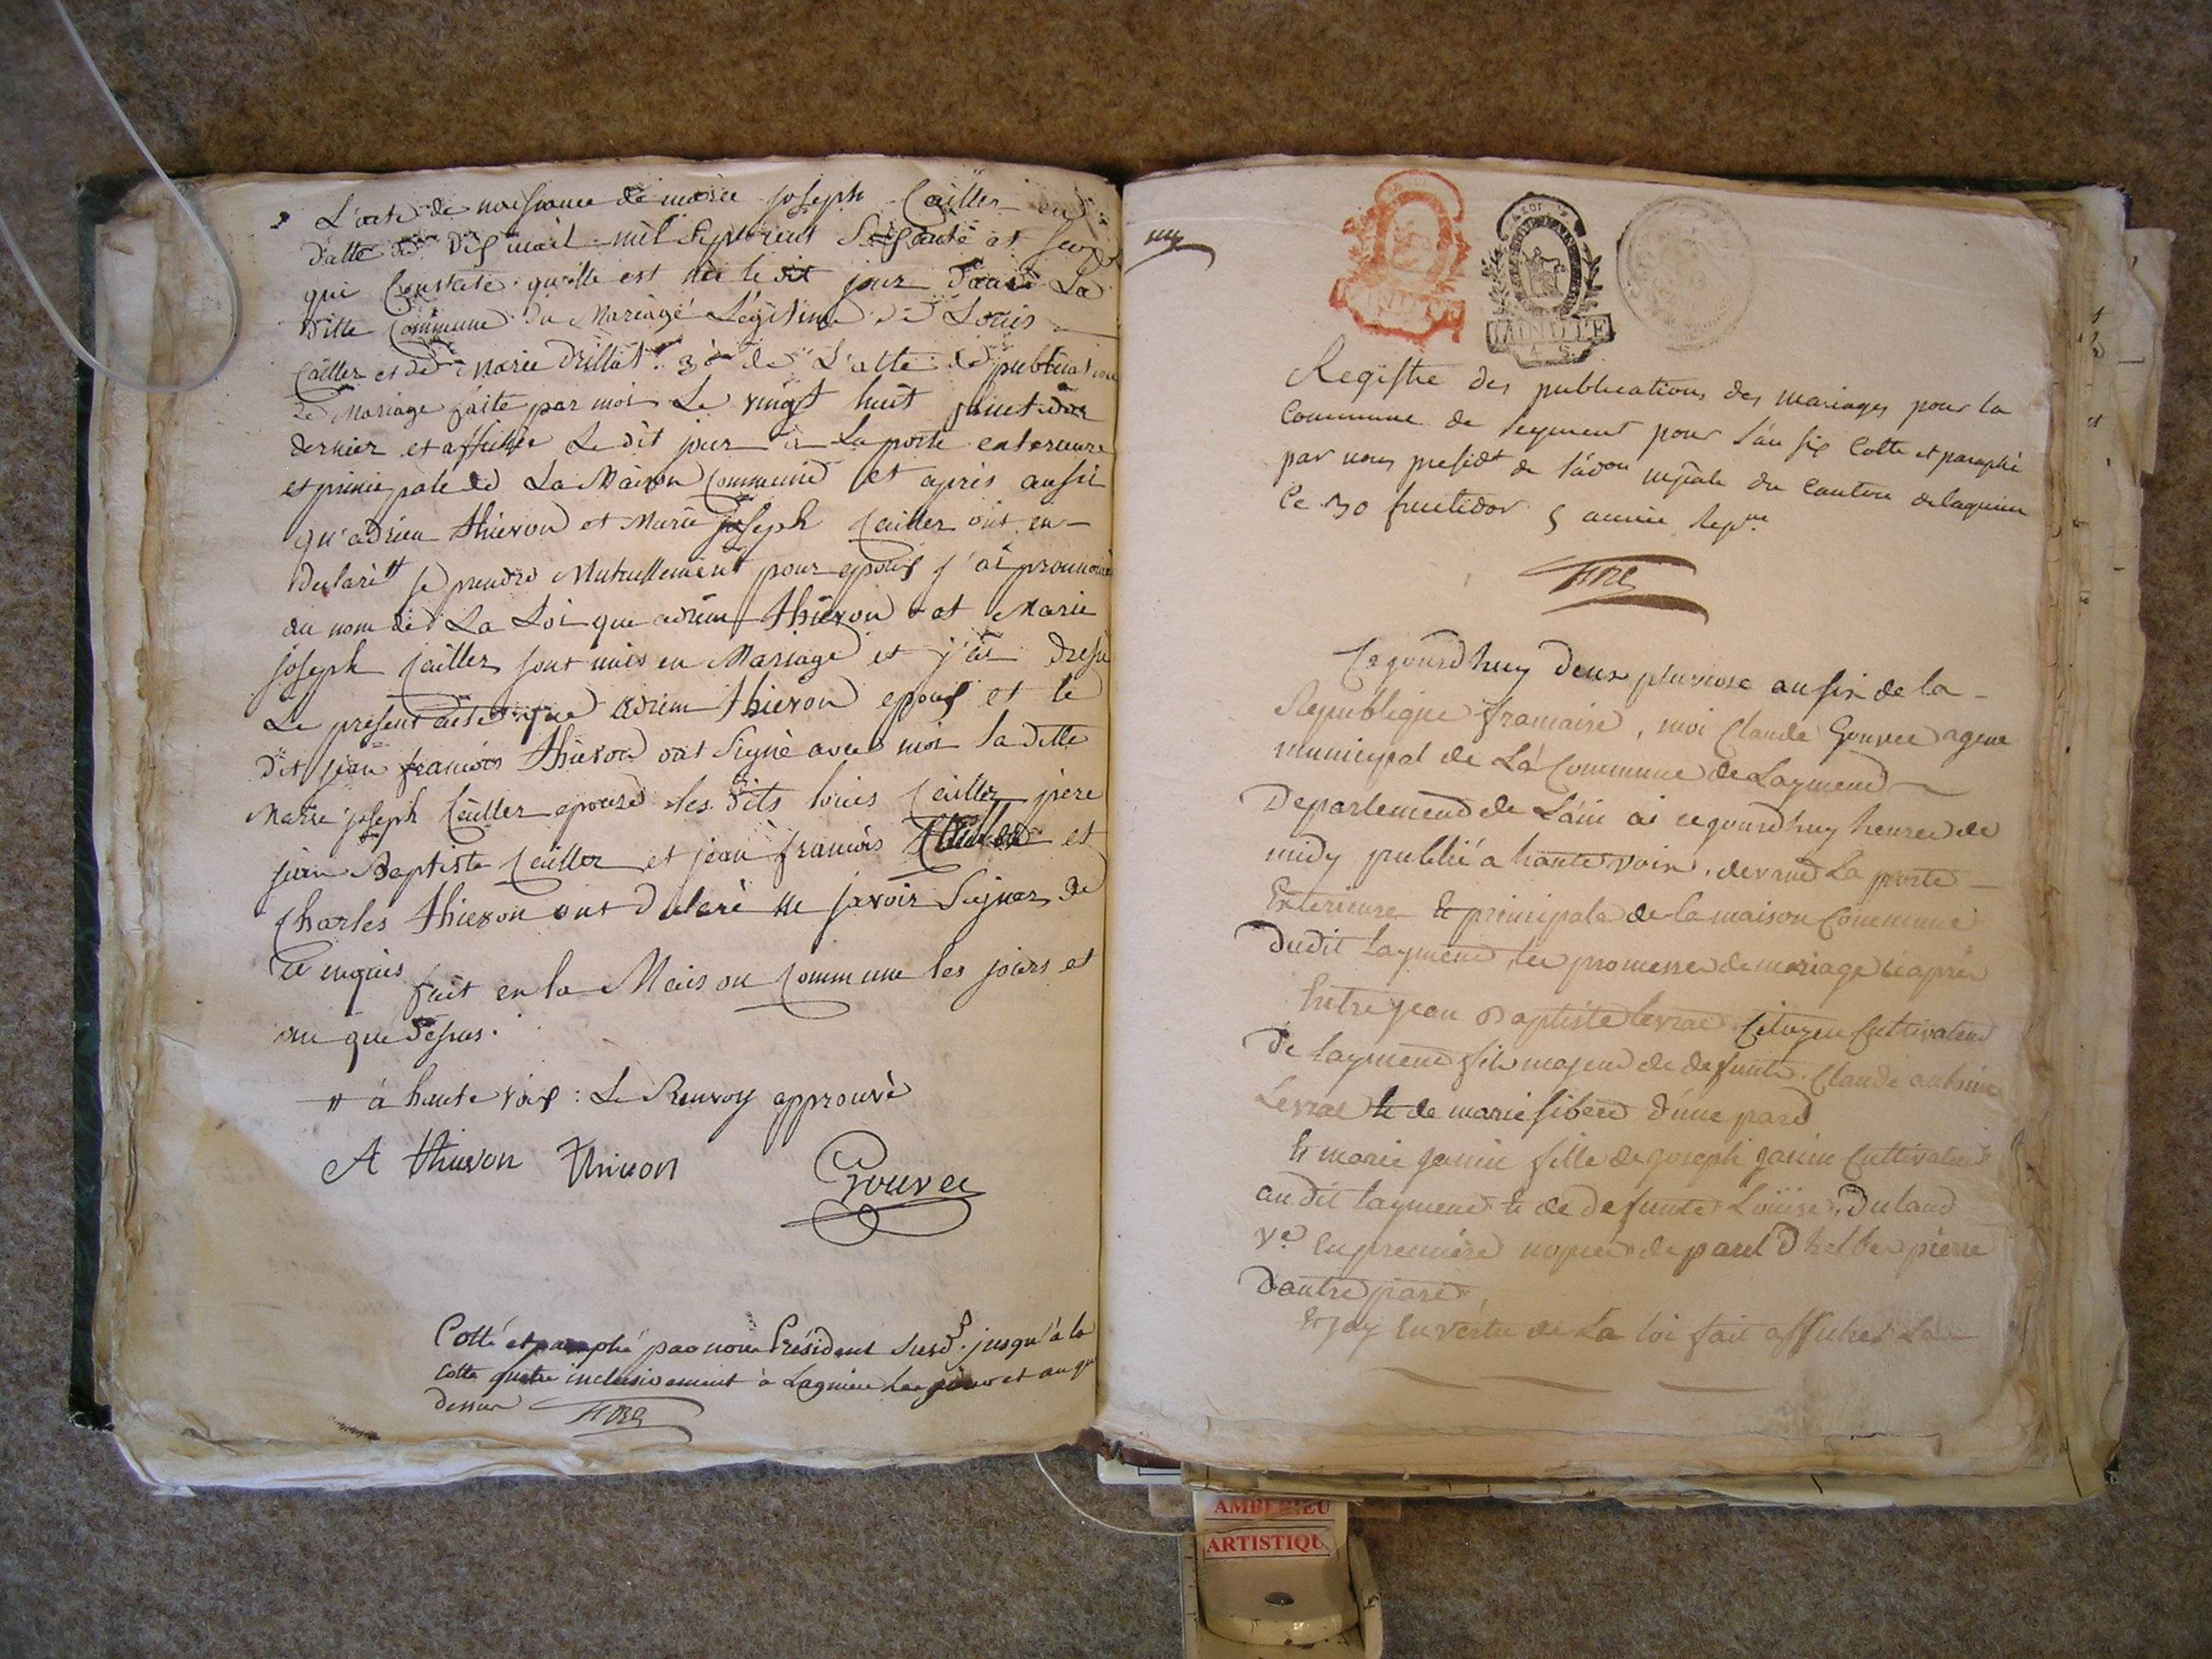 L'acte de naissance de marie joseph Cailler en
datte du dix mail mil sept cent soixante et
qui Constate qu'elle est née le dit jour dans La
ditte Commune du Mariage Légitime de Louis
Cailler et de Marie Drillat. 3° de L'atte de publication
de Mariage faite par moi Le vingt huit
dernier et affichée Le dit jour à La porte exterieure
et principale de La Maison Commune et après aussi
qu'adrien thievon et Marie joseph Cailler ont en-
declaré # se prendre Mutuellement pour epoux j'ai prononcé
au nom de La Loi que adrien thievon et Marie
joseph Cailler sont unis en Mariage et j'ai dressé
Le present acte que adrien thievon epoux et le
dit jean francois thievon ont signé avec moi la ditte
Marie joseph Cailler epouse les dits louis Cailler père
jean Baptiste Cailler et jean francois et
Charles thievon ont declaré ne savoir Signer de
ce enquis fait en la Maison Commune les jours et
an que dessus.
# à haute voix : Le Renvoy approuvé
A thievon thievon Gouvee
Cotté et paraphé par nous Président susd. jusqu'à la
cotte quatre inclusivement à Lagnieu les jour et an que
dessus
Registre des publications des mariages pour la
Commune de leyment pour l'an six Cotté et paraphé
par nous presidt de l'adon mpale du Canton de lagnieu
Ce 30 fructidor 5 année Repne
Cejourdhuy deux pluviose an six de la
Republique francaise, moi Claude Gouvee agent
municipal de La Commune de Laymend
Departemend de L'ain ai cejourdhuy heure de
midy publié a haute voix, devand La porte
Exterieure et principale de la maison Commune
dudit Laymend, les promesses de mariage ciaprès
Entre jean Baptiste levrat Citoyen Cultivateur
de laymend fils majeur de defunts Claude antoine
Levrat et de marie sibert d'une pard
Et marie janin fille de joseph janin Cultivateur
au dit laymend et de defunte Louise Duland
Ve En premiere nopces de pierre
D'autre pard
Et jay En vértu de La loi fait afficher
AMBERIEU
ARTISTIQU